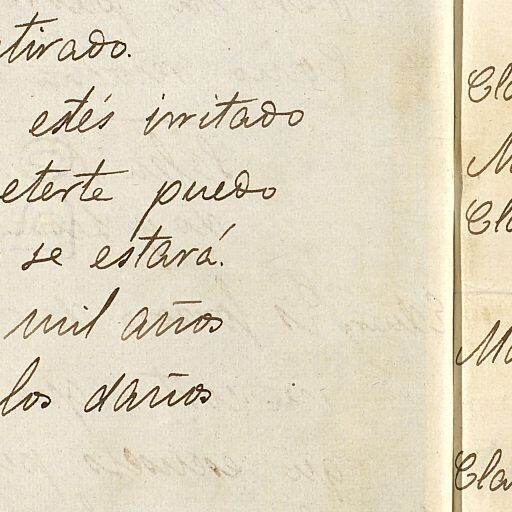 tirado.
estés irritado
eterte puedo
se estará.
mil años
los daños
Cla
Ma
Cla
Ma
Clar